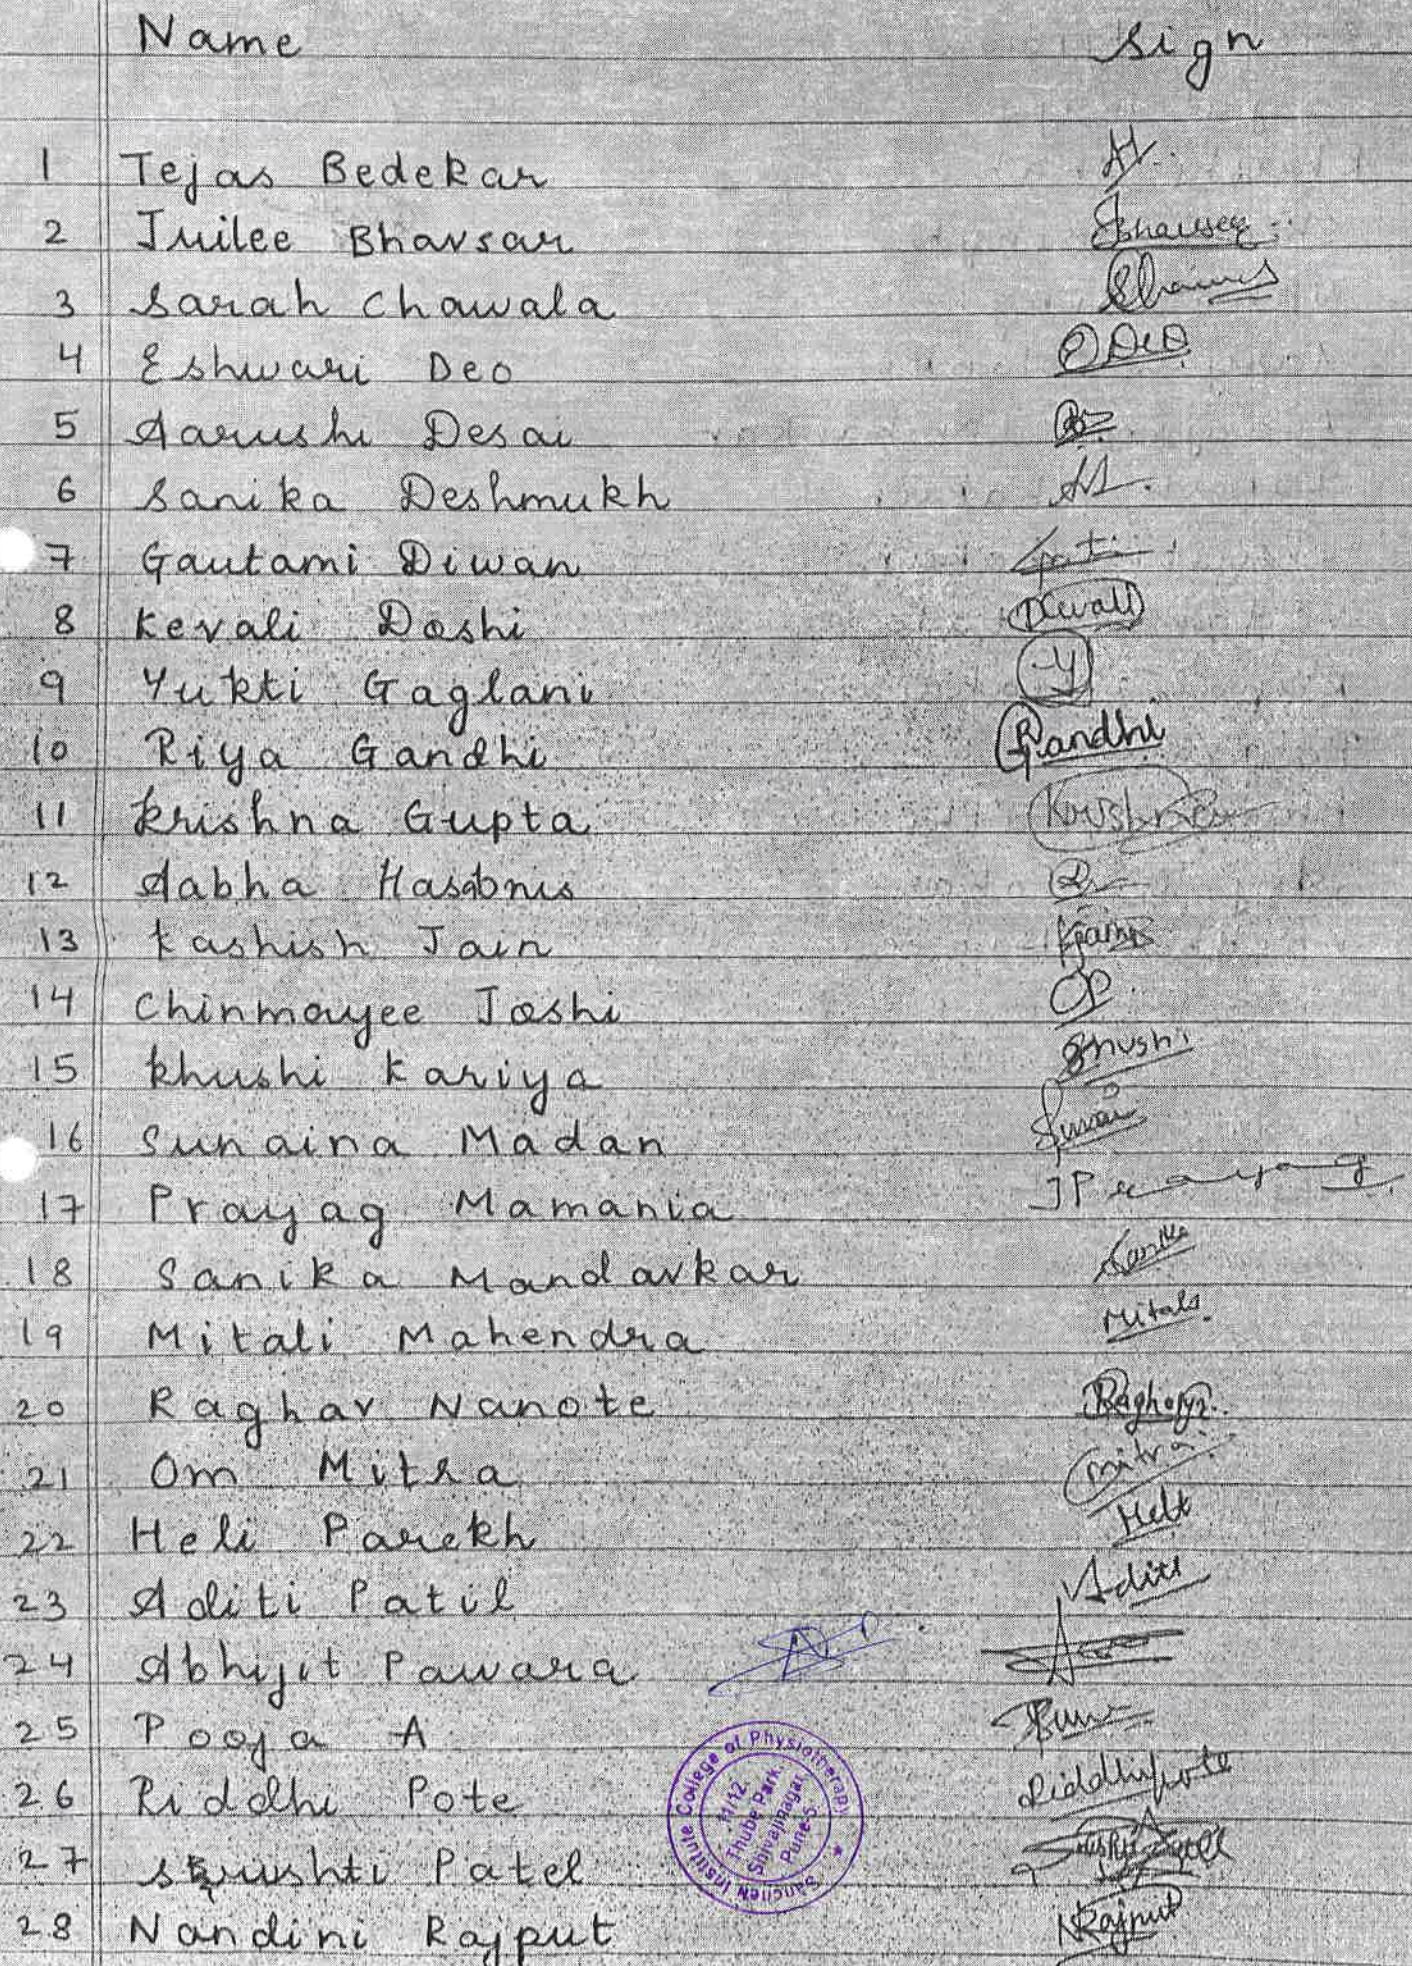 Name Sign
1 Tejas Bedekar
2 Juilee Bhavsar
3 Sarah Chawala
4 Eshwari Deo E Deo
5 Aarushi Desai
6 Sanika Deshmukh
7 Gautami Diwan
8 Kevali Doshi
9 Yukti Gaglani Y
10 Riya Gandhi Gandhi
11 Krishna Gupta Krishna
12 Aabha Hasabnis
13 Kashish Jain
14 Chinmayee Joshi
15 Khushi Kariya Khushi
16 Sunaina Madan
17 Prayag Mamania Prayag
18 Sanika Mandavkar Sanika
19 Mitali Mahendra Mitali
20 Raghav Nanote Raghav
21 Om Mitra Mitra
22 Heli Parekh Heli
23 Aditi Patil Aditi
24 Abhijit Pawara
25 Pooja A
26 Riddhi Pote Riddhipote
27 Srushti Patel
28 Nandini Rajput NRajput
Sancheti Institute College of Physiotherapy
11/12
Thube Park
Shivajinagar
Pune-5